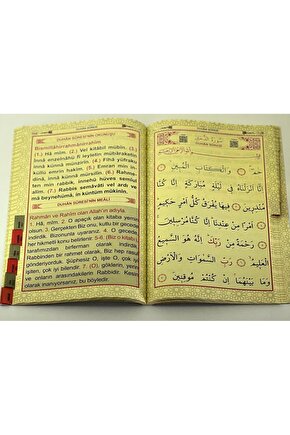 DUHÂN SÛRESİ'NİN OKUNUŞU
Bismillâhirrahmânirrahîm
(1.) Hâ mîm. (2.) Vel kitâbil mübîn. (3.)
İnnâ enzelnâhü fî leyletin mübâraketin
innâ künnâ münzirîn. (4.) Fîhâ yüfraku
küllü emrin hakîm. (5.) Emran min
indinâ, innâ künnâ mürsilîn. (6.) Rahme-
ten min rabbik, innehû hüves semîul
alîm. (7.) Rabbis semâvâti vel ardı ve
mâ beynehümâ, in küntüm mûkinîn.
DUHÂN SÛRESİ'NİN MEÂLİ
Rahmân ve Rahîm olan Allah'ın adıyla
1. Hâ mîm. 2. O apaçık olan kitaba yemin
olsun. 3. Gerçekten Biz onu, kutlu bir gecede
indirdik. Bizonunla uyarıyoruz. 4. O gecede
her hikmetli konu belirlenir. 5-6. (Biz o kitabı)
tarafımızdan bir emir olarak indirdik.
Rabbinden bir rahmet olarak. Biz hep rasul
gönderiyorduk. Şüphesiz O, işte O, çok iyi
işiten, çok iyi bilendir. 7. (O), göklerin, yerin
ve onların arasındakilerin Rabbidir. Kesin
olarak inanıyorsanız, bu böyledir.
حٰمٓ وَالْكِتَابِ الْمُبِينِ
اِنَّٓا اَنْزَلْنَاهُ فِي لَيْلَةٍ مُبَارَكَةٍ اِنَّا كُنَّا
مُنْذِرِينَ فِيهَا يُفْرَقُ كُلُّ اَمْرٍ حَكِيمٍ
اَمْرًا مِنْ عِنْدِنَا اِنَّا كُنَّا مُرْسِلِينَ
رَحْمَةً مِنْ رَبِّكَ اِنَّهُ هُوَ السَّمِيعُ
الْعَلِيمُ رَبِّ السَّمٰوَاتِ وَالْاَرْضِ
وَمَا بَيْنَهُمَا اِنْ كُنْتُمْ مُوقِنِينَ